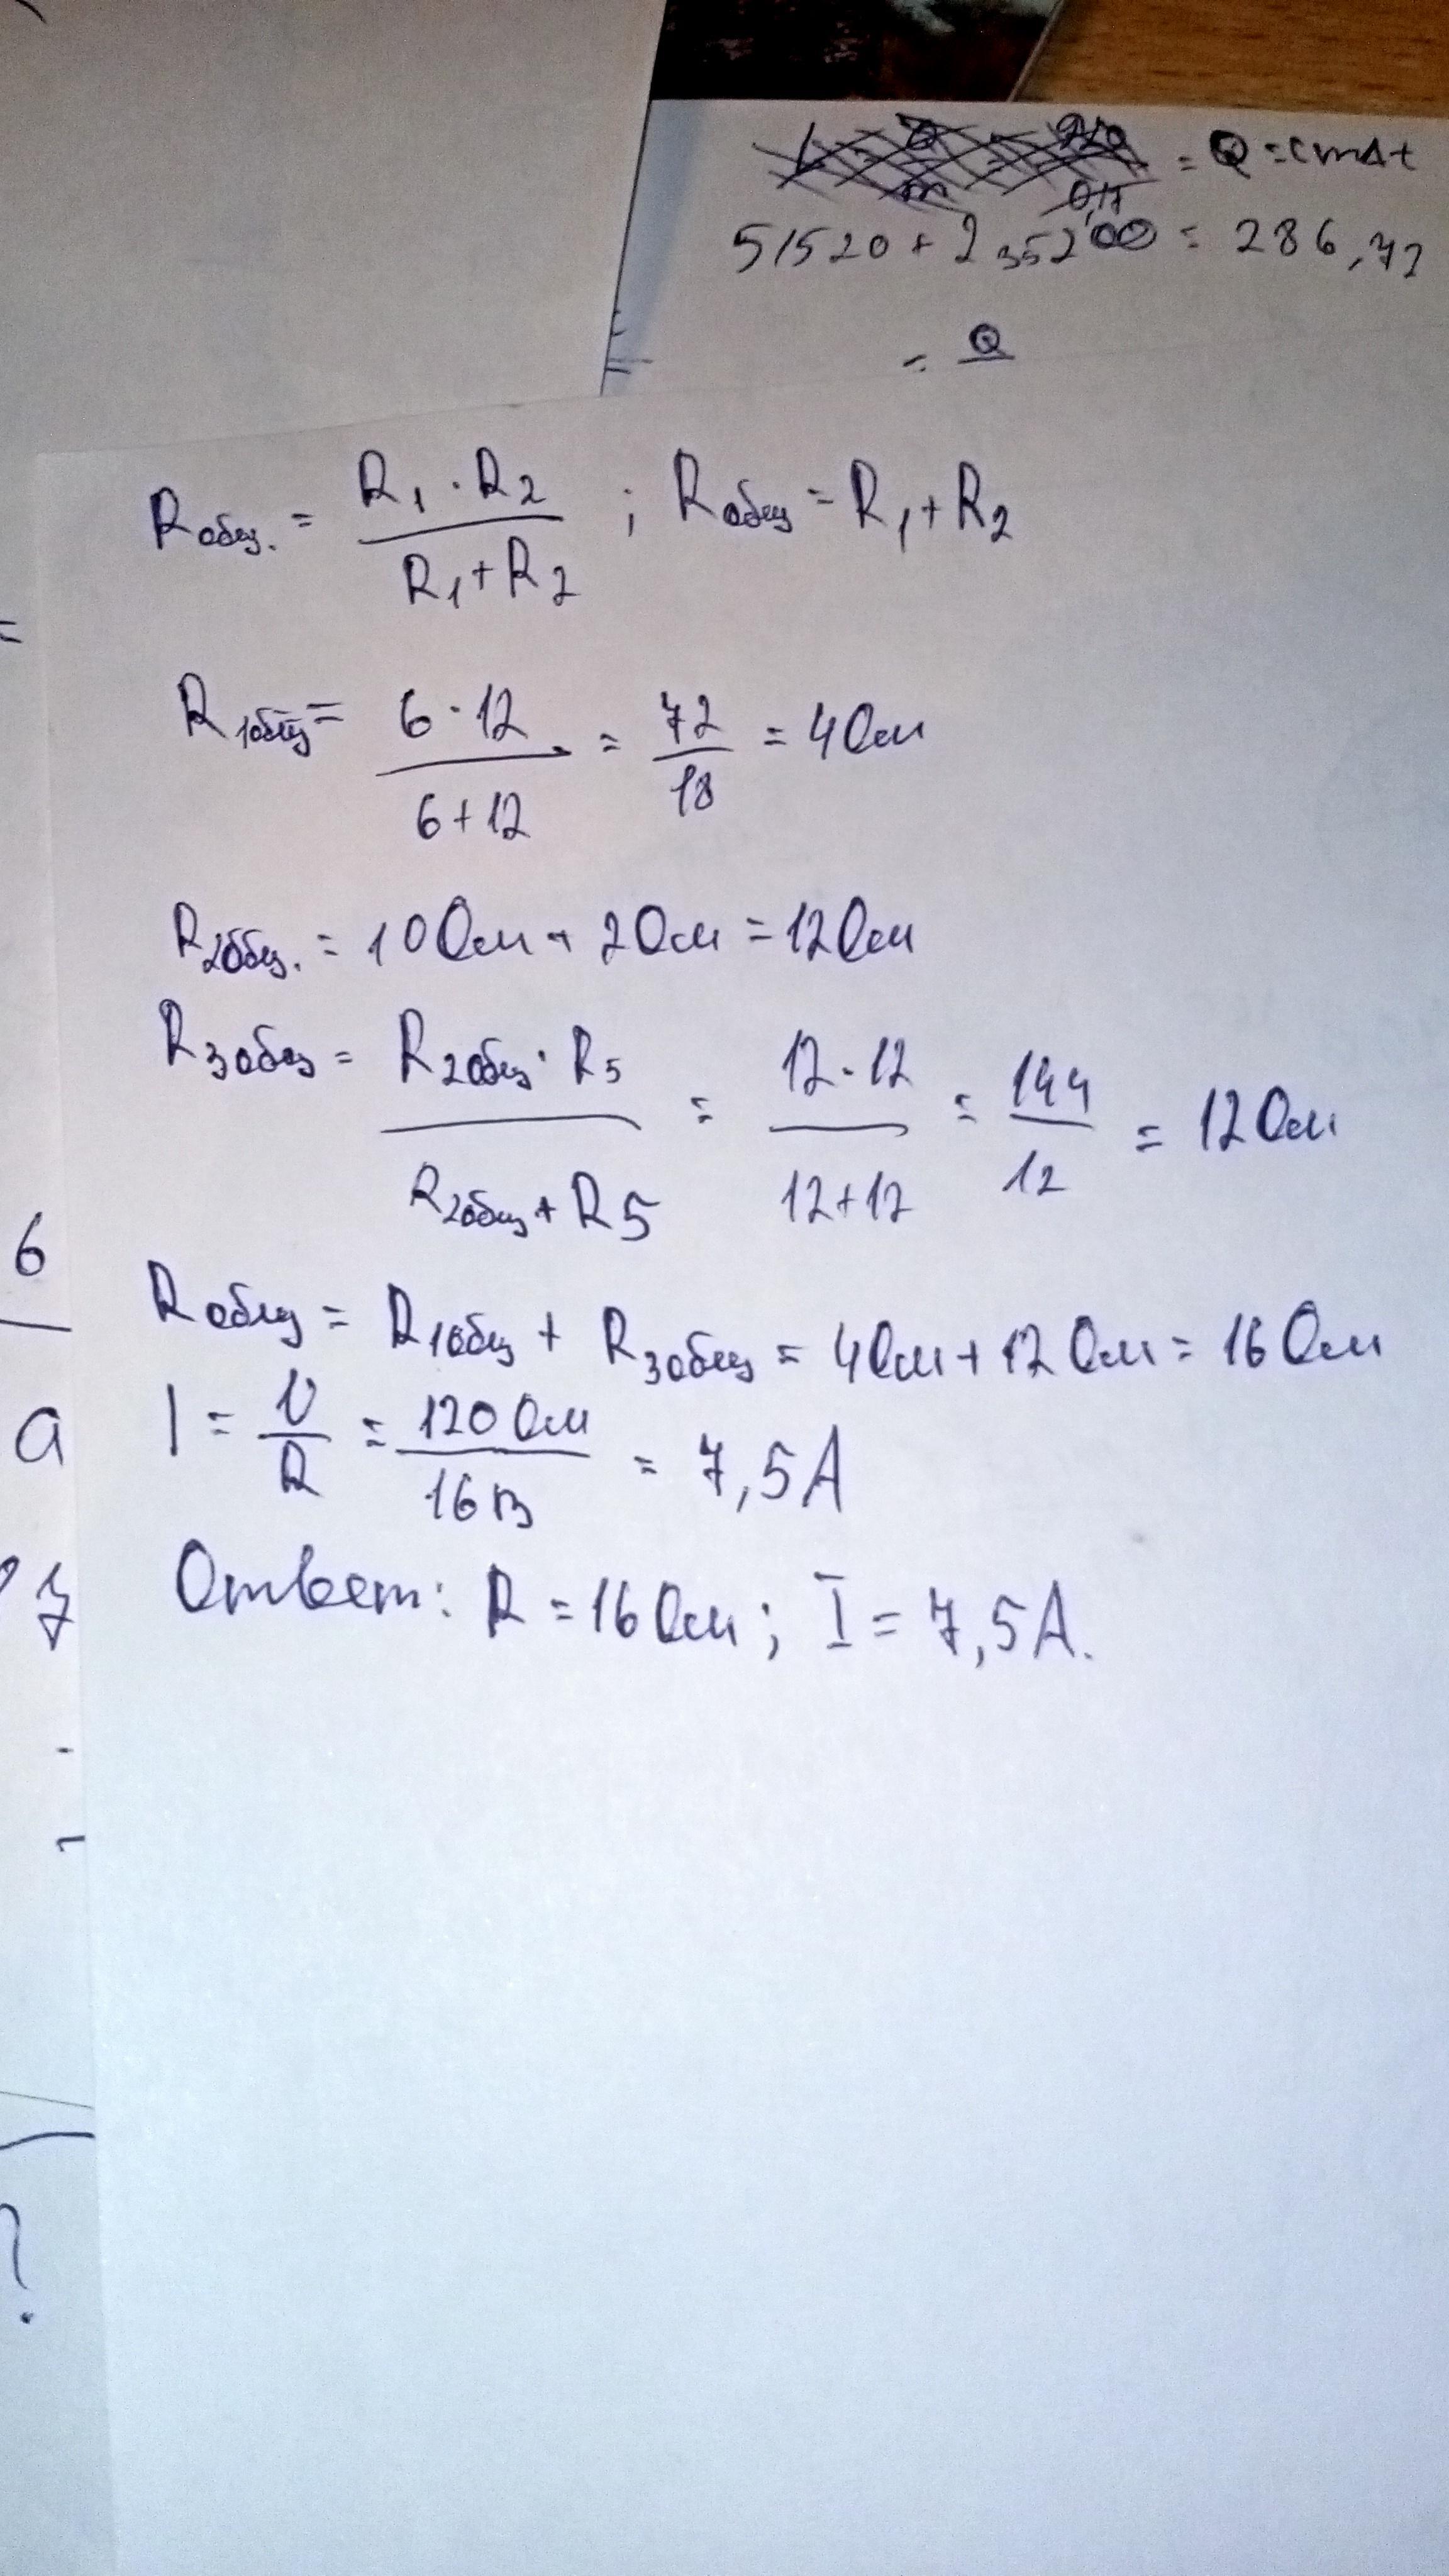 = Q = cmΔt
51520 + 235200 = 286,72
= Q
Rобщ. = R₁ · R₂ / R₁ + R₂ ; Rобщ = R₁ + R₂
R1общ = 6 · 12 / 6 + 12 = 72 / 18 = 4 Ом
R2общ. = 10 Ом + 2 Ом = 12 Ом
R3общ = R2общ · R5 / R2общ + R5 = 12 · 12 / 12 + 12 = 144 / 12 = 12 Ом
6
Rобщ = R1общ + R3общ = 4 Ом + 12 Ом = 16 Ом
a
I = U / R = 120 Ом / 16 В = 7,5 А
Ответ: R = 16 Ом; I = 7,5 А.
?